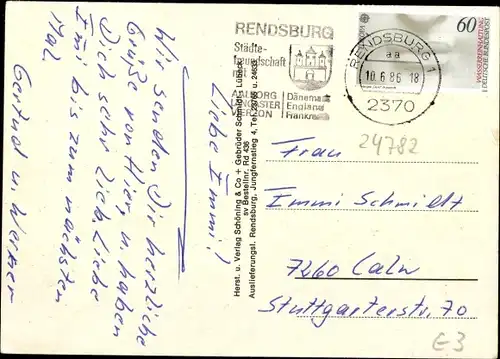 RENDSBURG
Städte-
freundschaft
mit
AALBORG Dänemark
LANCASTER England
VIERZON Frankreich
RENDSBURG 1
aa
10.6.86-18
2370
60
WASSERREINHALTUNG
DEUTSCHE BUNDESPOST
24782
Liebe Immi!
Wir senden Dir herzliche
Grüße von hier, u. haben
Dich sehr lieb. Liebe
Immi bis zum nächsten
Mal
Gertrud u. Werner
Herst. u. Verlag Schöning & Co + Gebrüder Schmidt, Lübeck
sv Bestellnr. Rd 436
Auslieferungsl. Rendsburg, Jungfernstieg 4, Tel. u. 24633
Frau
Immi Schmidt
7260 Calw
Stuttgarterstr. 70
E3